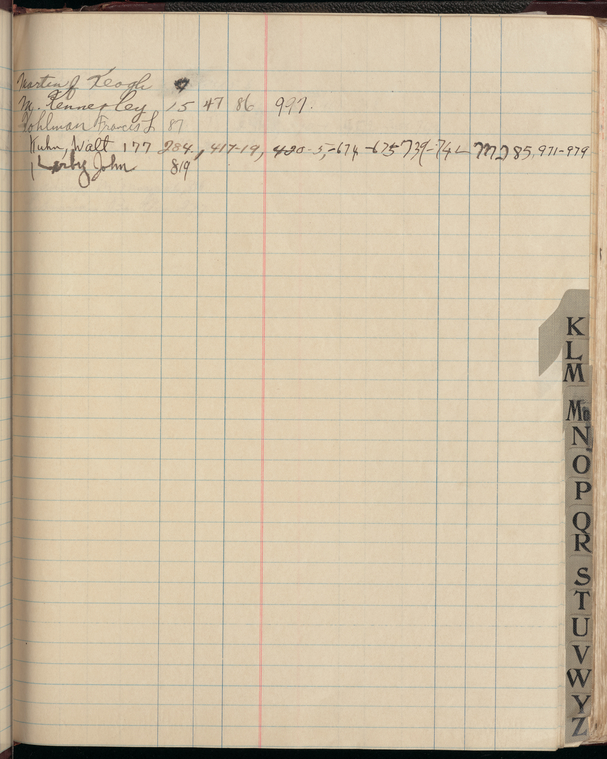 Martin J Keogh
M. Kennerley 15 47 86 997.
Kohlman Francis L 87
Kuhn, Walt 177 284, 417-19, 420-5, -674 -675 739-742 M285, 971-979
Kerby John 819
K
L
M
Mc
N
O
P
Q
R
S
T
U
V
W
Y
Z